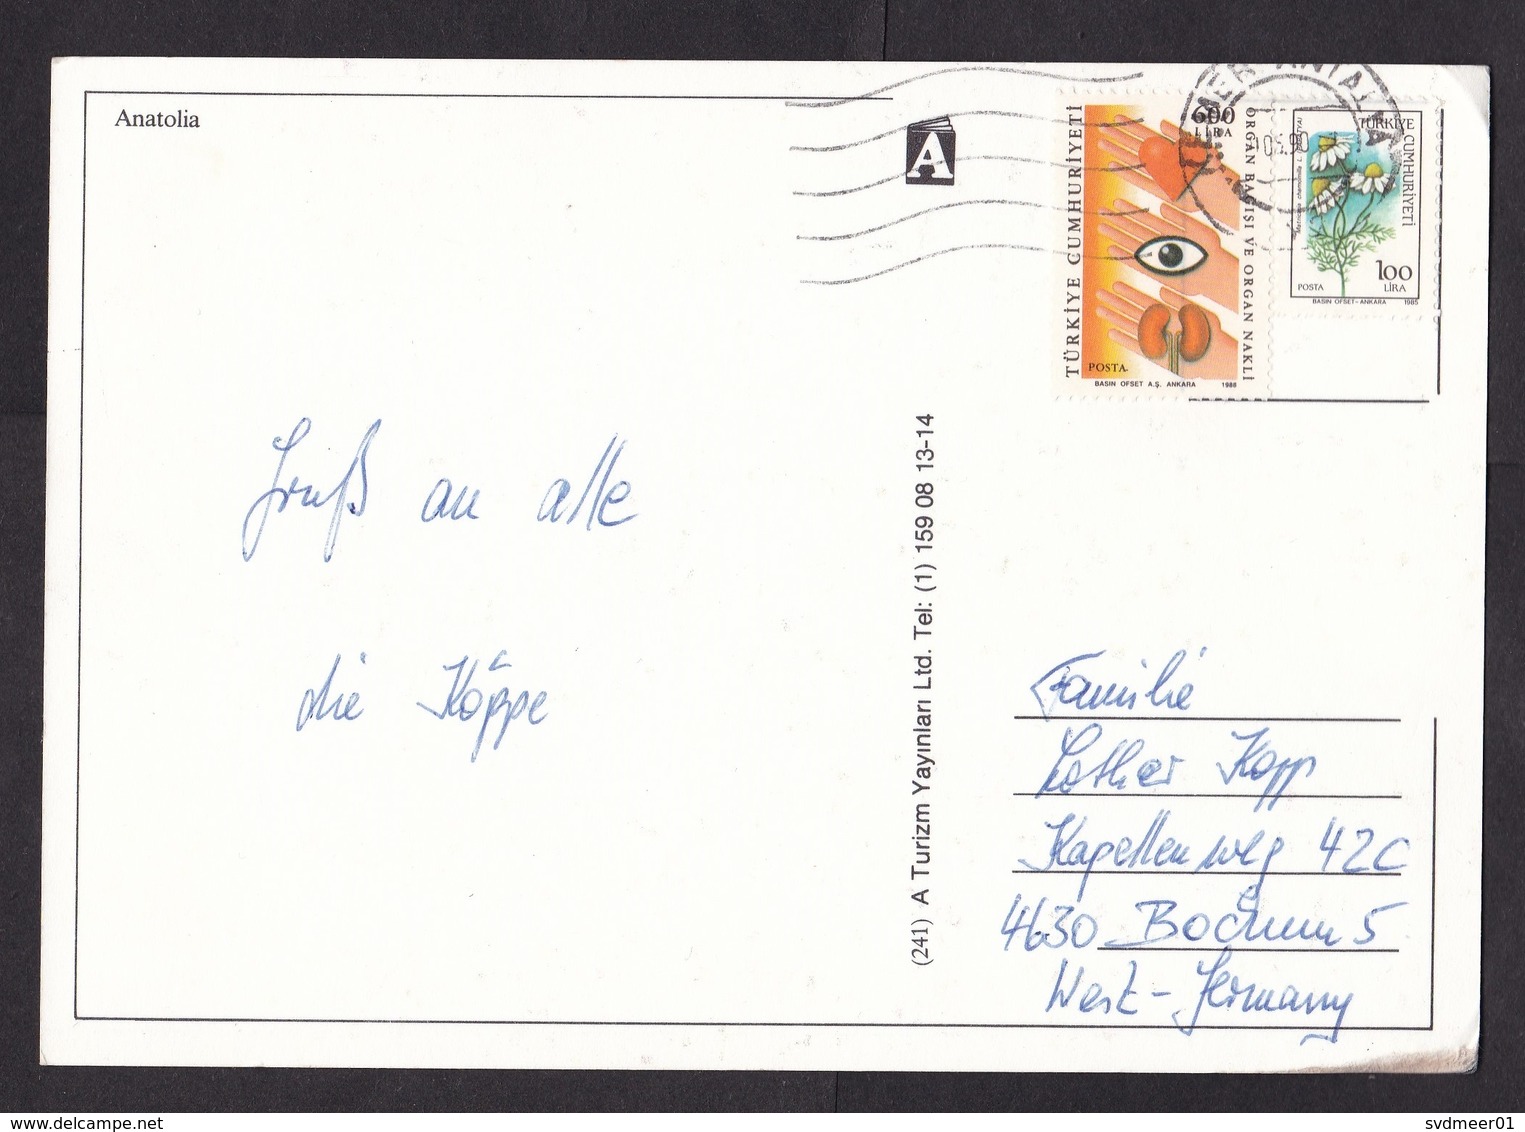 Anatolia
A
TÜRKİYE CUMHURİYETİ
600
LİRA
ORGAN BAĞIŞI VE ORGAN NAKLİ
POSTA
BASIN OFSET A.Ş. ANKARA 1988
TÜRKİYE CUMHURİYETİ
100
LİRA
POSTA
BASIN OFSET-ANKARA 1985
ANTALYA
Gruß an alle
die Köppe
(241) A Turizm Yayınları Ltd. Tel: (1) 159 08 13-14
Familie
Lothar Kopp
Kapellenweg 42c
4630 Bochum 5
West-Germany
svdmeer01